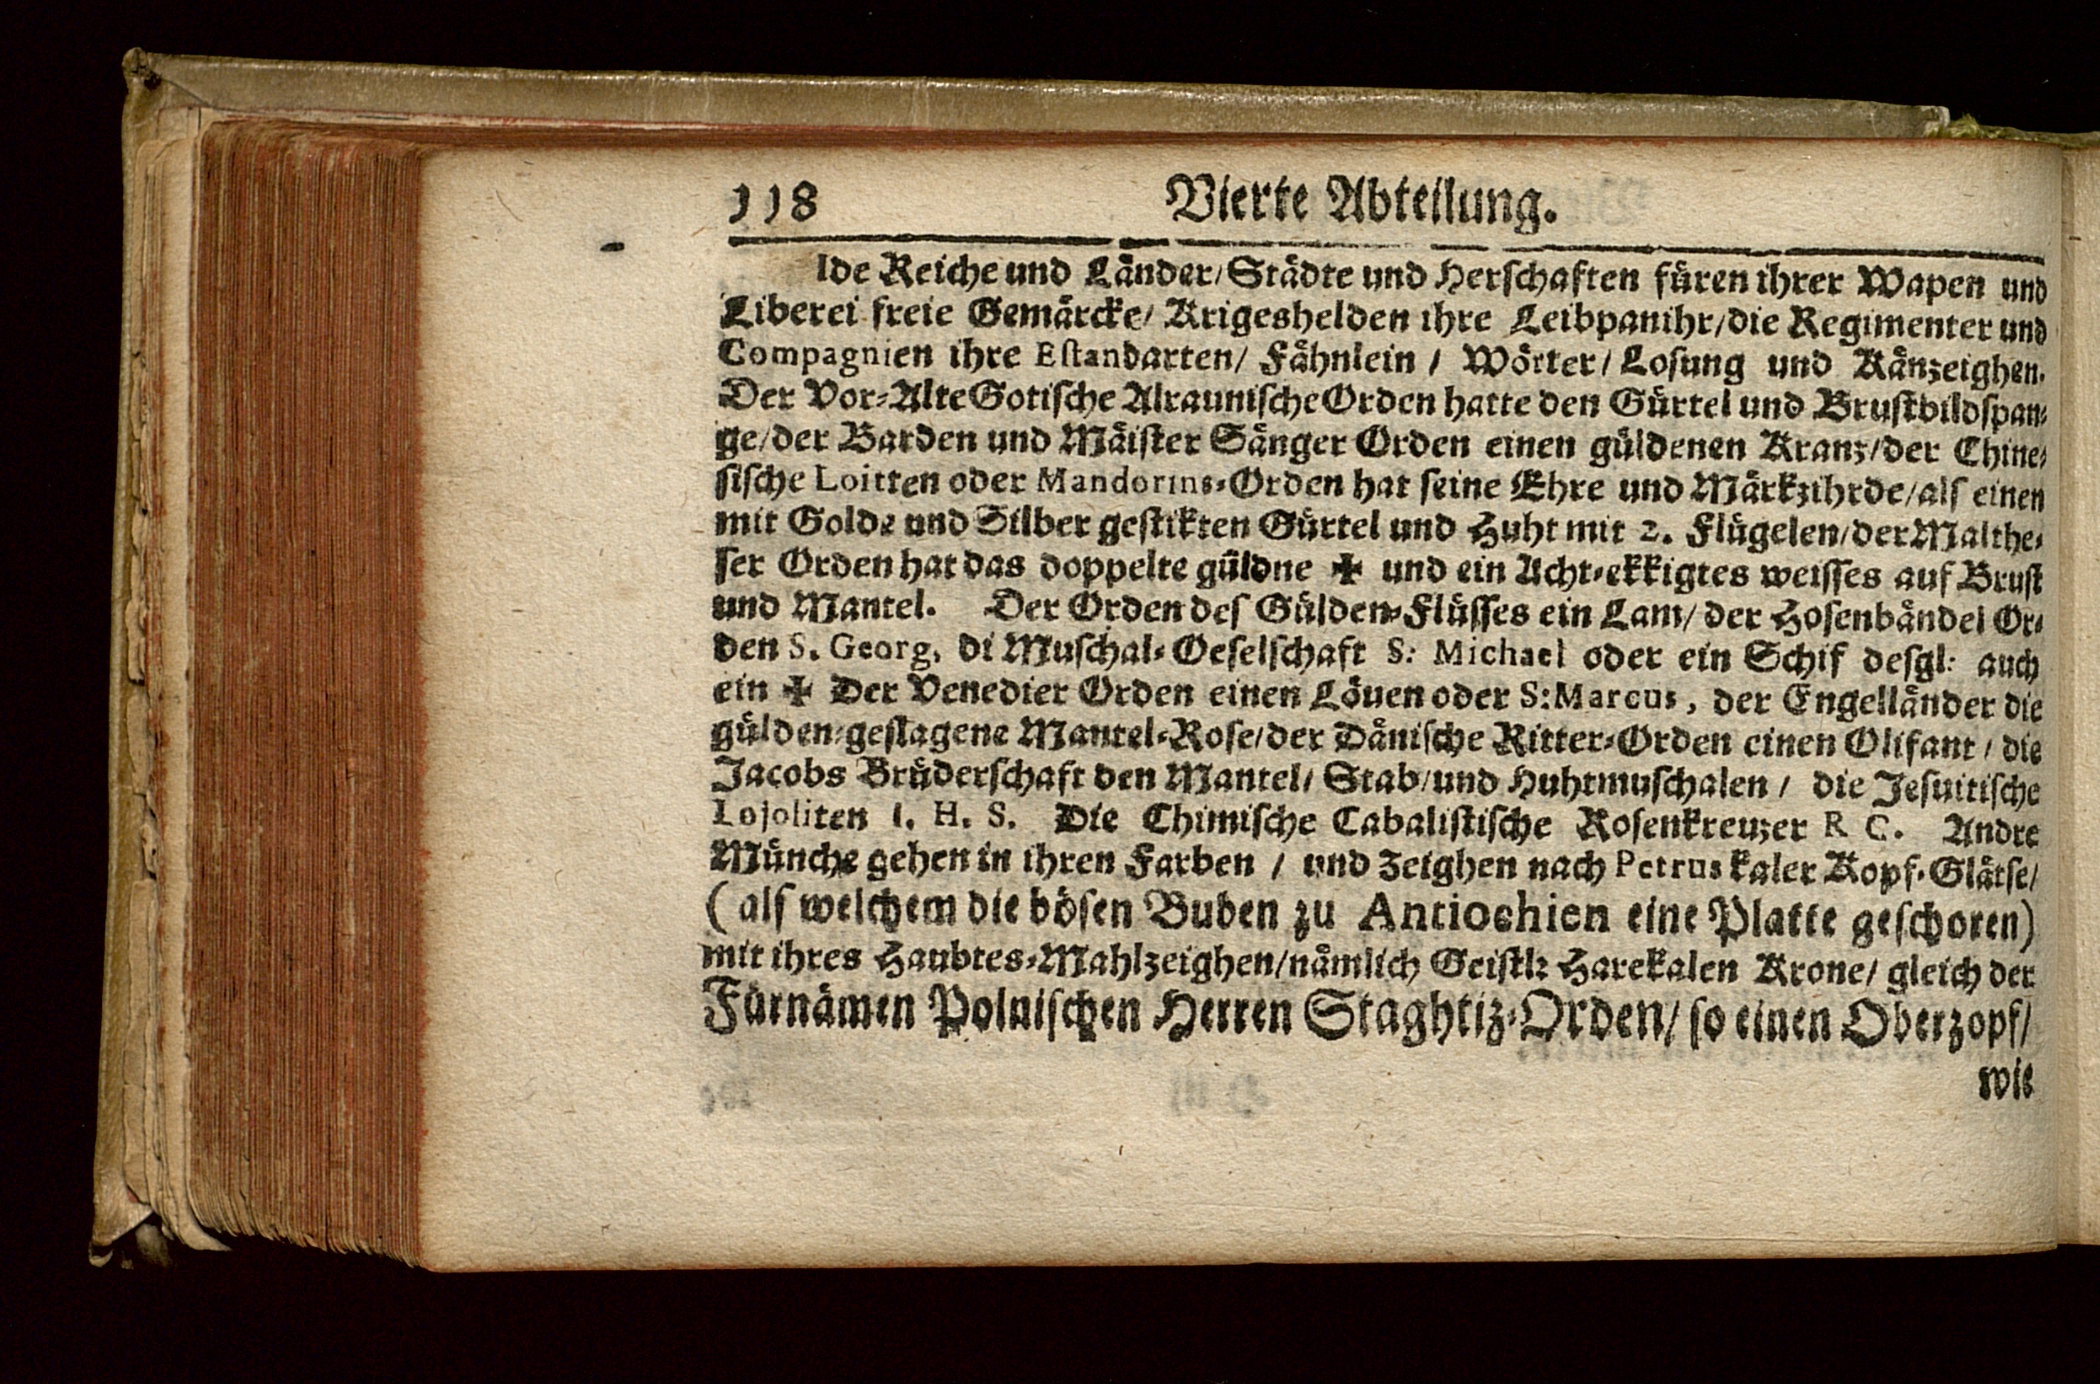 118 Vierte Abteilung.
Ide Reiche und Länder/Städte und Herschaften füren ihrer Wapen und
Liberei freie Gemärcke/ Krigeshelden ihre Leibpanihr/die Regimenter und
Compagnien ihre Eſtandarten/ Fähnlein / Wörter/Loſung und Känzeighen.
Der Vor-Alte Gotiſche Alrauniſche Orden hatte den Gürtel und Bruſtbildſpan-
ge/der Barden und Mäiſter Sänger Orden einen güldenen Kranz/der Chine-
ſiſche Loitten oder Mandorins-Orden hat ſeine Ehre und Märkzihrde/alſ einen
mit Golde und Silber geſtikten Gürtel und Huht mit 2. Flügelen/der Malthe-
ſer Orden hat das doppelte güldne ✠ und ein Acht-ekkigtes weiſſes auf Bruſt
und Mantel. Der Orden deſ Gülden-Flüſſes ein Lam/ der Hoſenbändel Or-
den S. Georg, di Muſchal-Geſelſchaft S: Michael oder ein Schif deſgl: auch
ein ✠ Der Venedier Orden einen Löuen oder S:Marcus, der Engelländer die
gülden-geſlagene Mantel-Roſe/der Däniſche Ritter-Orden einen Olifant / die
Jacobs Brüderſchaft den Mantel/ Stab/und Huhtmuſchalen / die Jeſuitiſche
Lojoliten I. H. S. Die Chimiſche Cabaliſtiſche Roſenkreuzer R C. Andre
Münche gehen in ihren Farben / und Zeighen nach Petrus kaler Kopf-Glätſe/
(alſ welchem die böſen Buben zu Antiochien eine Platte geſchoren)
mit ihres Haubtes-Mahlzeighen/nämlich Geiſtl: Harekalen Krone/ gleich der
Fürnämen Polniſchen Herren Staghtiz-Orden/ ſo einen Oberzopf/
wie